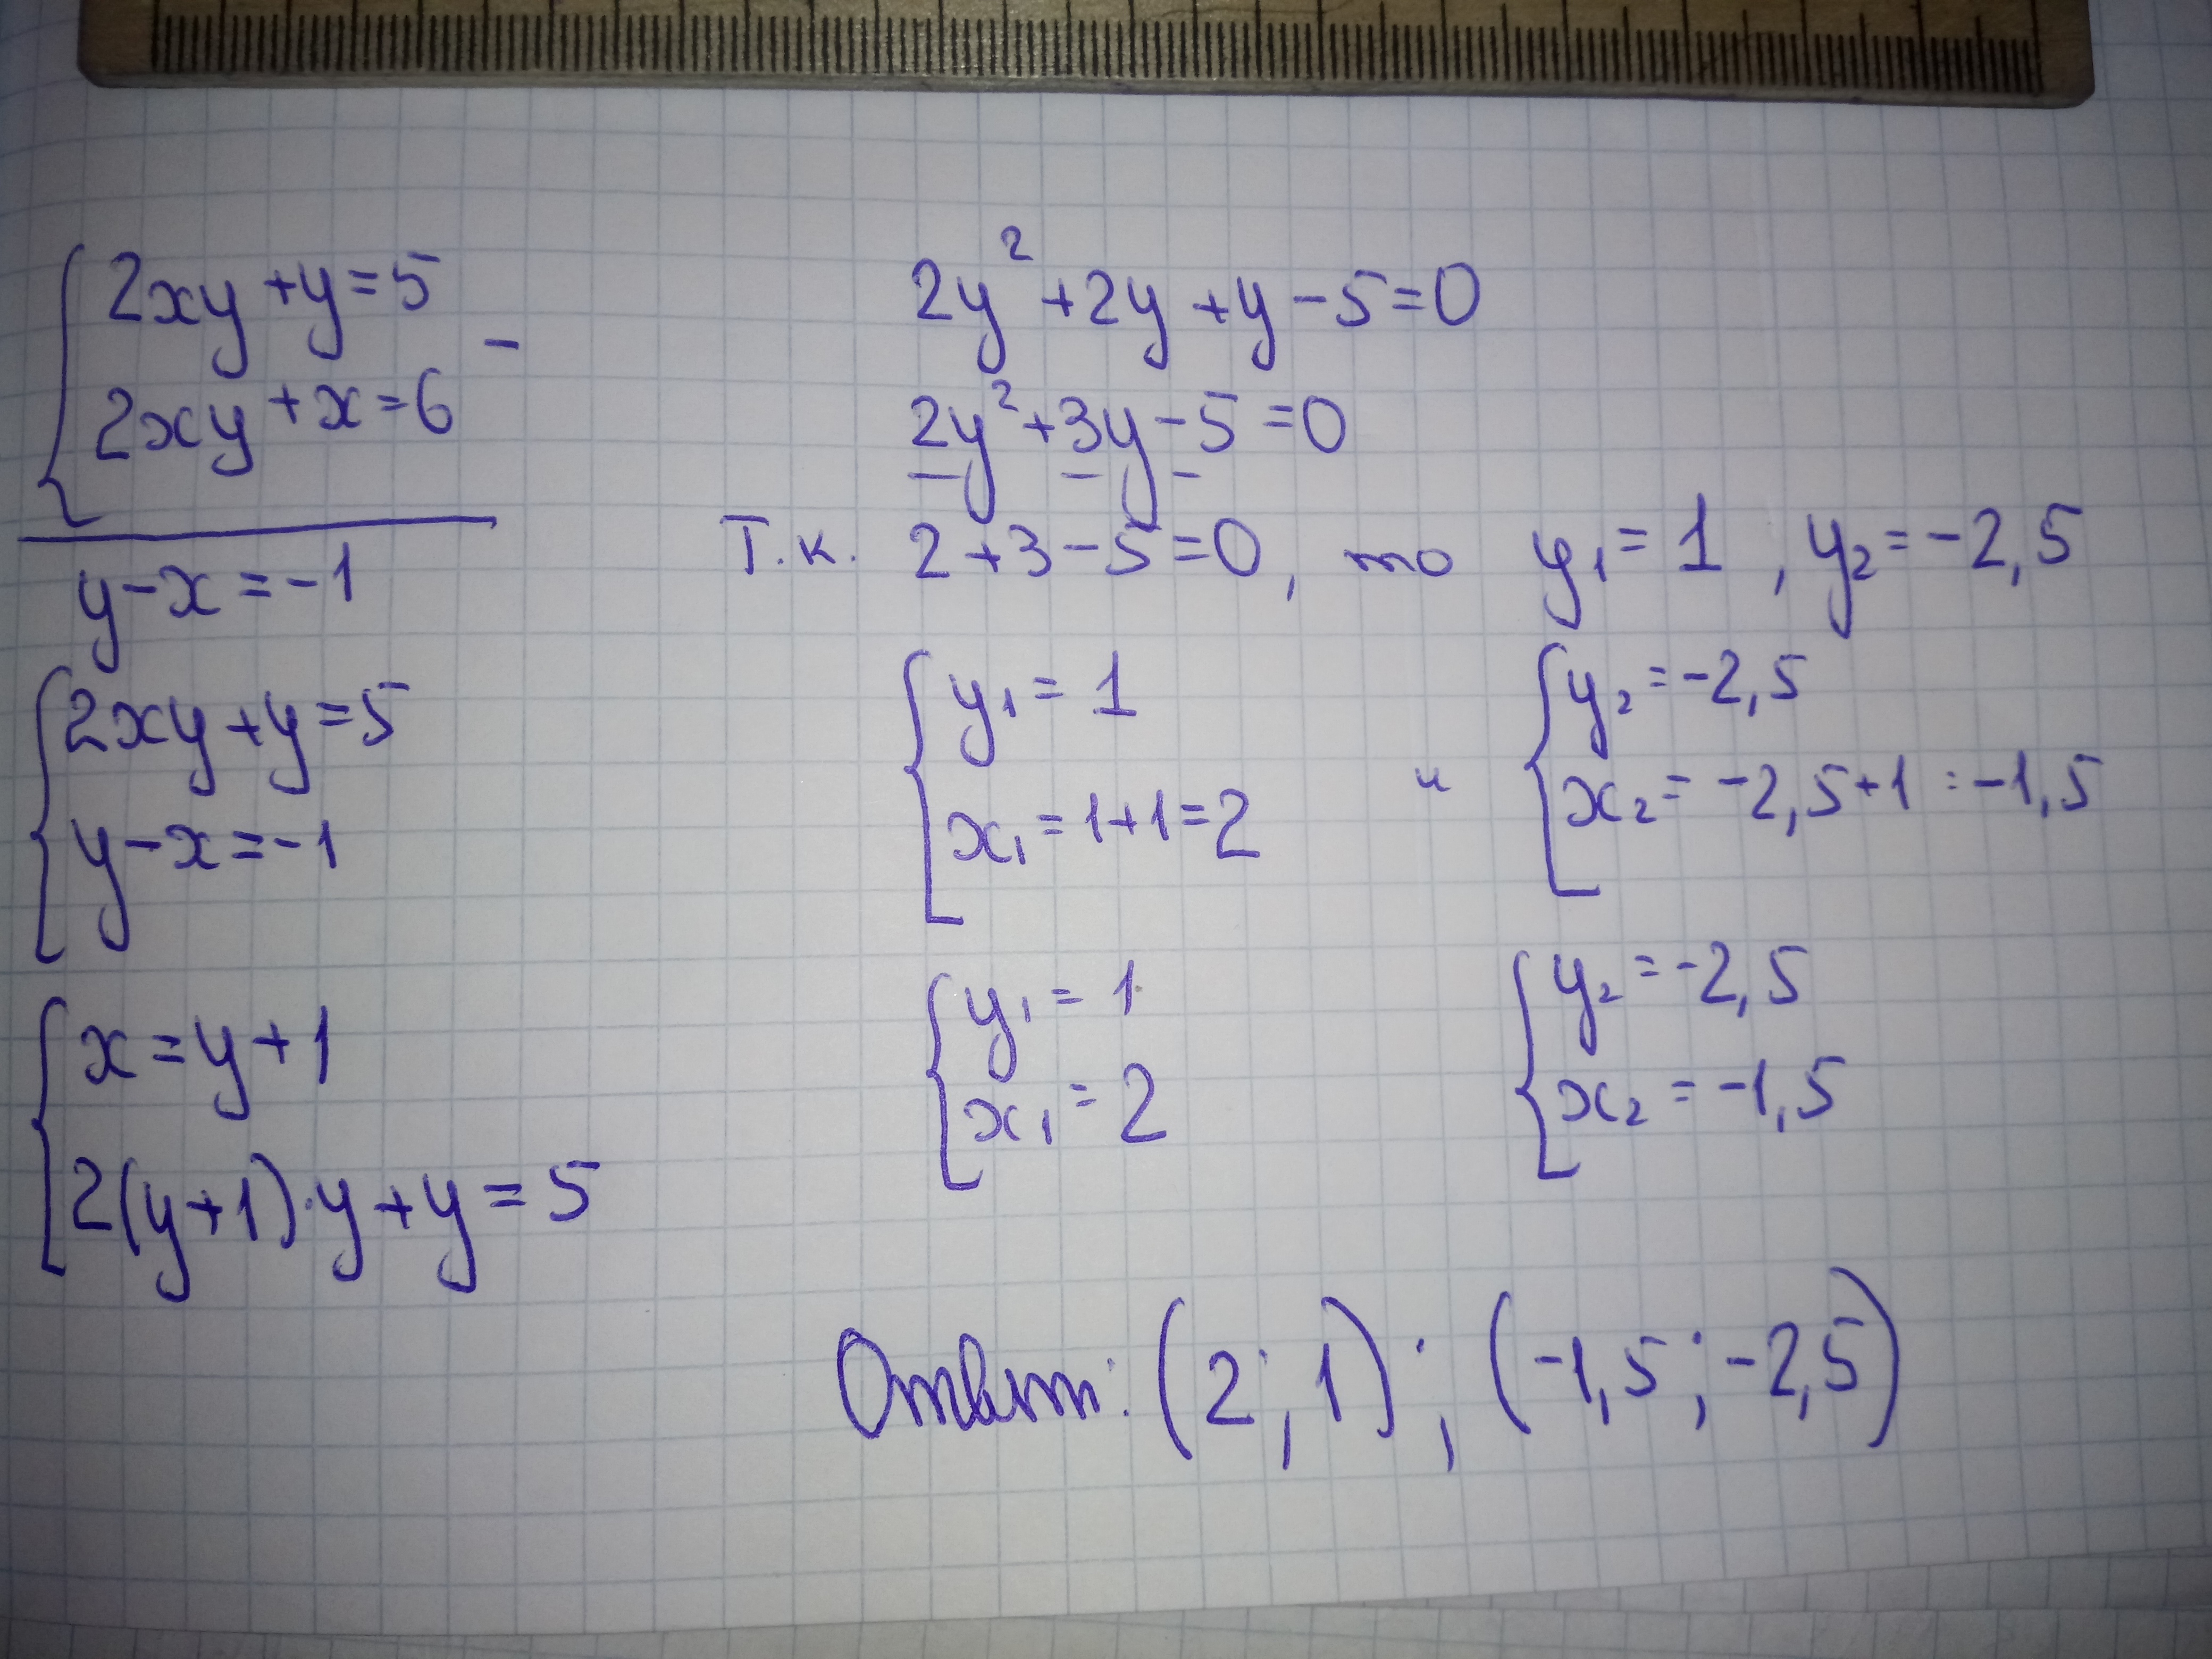 2xy+y=5
2xy+x=6 -
y-x=-1
2xy+y=5
y-x=-1
x=y+1
2(y+1)·y+y=5
2y²+2y+y-5=0
2y²+3y-5=0
Т.к. 2+3-5=0, то y₁=1, y₂=-2,5
y₁=1
x₁=1+1=2
и
y₂=-2,5
x₂=-2,5+1=-1,5
y₁=1
x₁=2
y₂=-2,5
x₂=-1,5
Ответ: (2;1); (-1,5;-2,5)